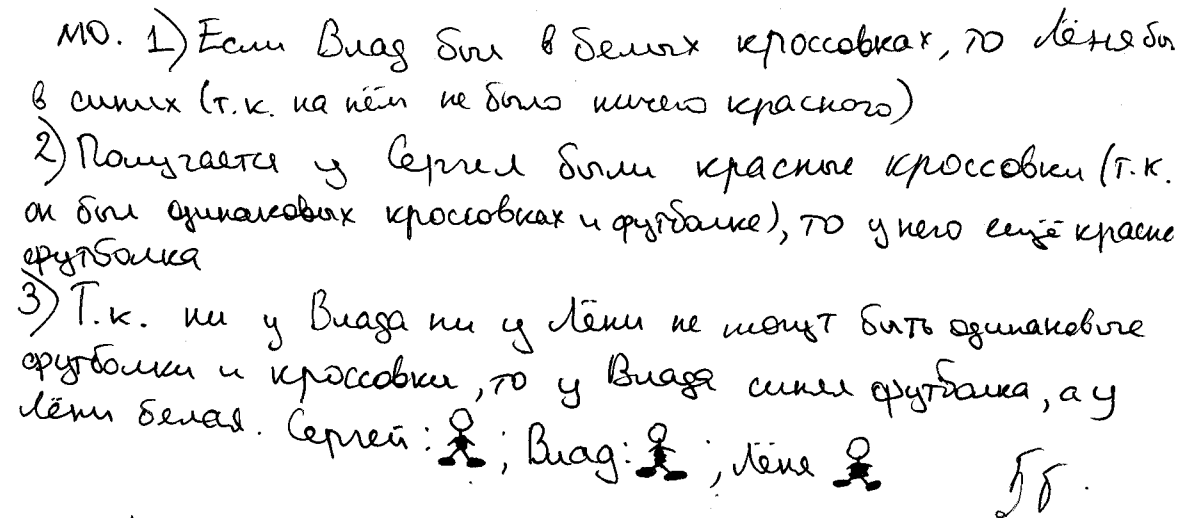 МО. 1) Если Влад был в белых кроссовках, то Лёня бы
в синих (т.к. на нём не было ничего красного)
2) Получается у Сергея были красные кроссовки (т.к.
он был одинаковых кроссовках и футболке), то у него ещё красне
футболка
3) Т.к. ни у Влада ни у Лёни не могут быть одинаковые
футболки и кроссовки, то у Влада синяя футболка, а у
Лёни белая. Сергей: ; Влад: ; Лёня
5б.